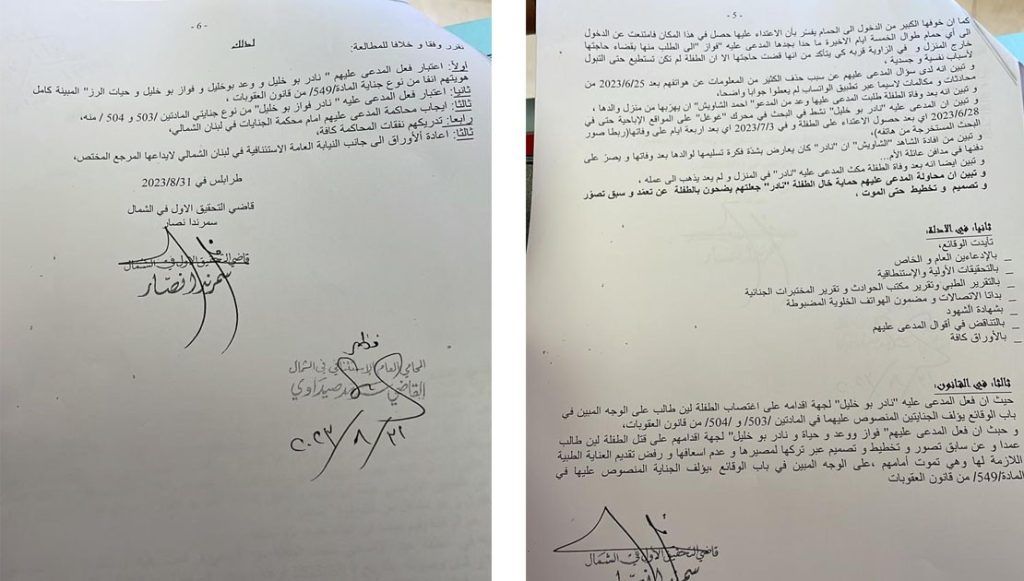 - 5 -
كما ان خوفها الكبير من الدخول الى الحمام يفسّر بأن الاعتداء عليها حصل في هذا المكان فامتنعت عن الدخول
الى أي حمام طوال الخمسة ايام الاخيرة ما حدا بجدها المدعى عليه "فواز" الى الطلب منها بقضاء حاجتها
خارج المنزل و في الزاوية قربه كي يتأكد من انها قضت حاجتها الا ان الطفلة لم تكن تستطيع حتى التبول
لأسباب نفسية و جسدية ،
و تبين انه لدى سؤال المدعى عليهم عن سبب حذف الكثير من المعلومات عن هواتفهم بعد 2023/6/25 من
محادثات و مكالمات لاسيما عبر تطبيق الواتساب لم يعطوا جوابا واضحا،
و تبين انه بعد وفاة الطفلة طلبت المدعى عليها وعد من المدعو "احمد الشاويش" ان يهربها من منزل والدها ،
و تبين ان المدعى عليه "نادر بو خليل" نشط في البحث في محرك "غوغل" على المواقع الإباحية حتى في
2023/6/28 اي بعد حصول الاعتداء على الطفلة و في 2023/7/3 اي بعد اربعة ايام على وفاتها(ربطا صور
البحث المستخرجة من هاتفه)،
و تبين من افادة الشاهد "الشاويش" ان "نادر" كان يعارض بشدّة فكرة تسليمها لوالدها بعد وفاتها و يصرّ على
دفنها في مدافن عائلة الأم...
و تبين ايضا انه بعد وفاة الطفلة مكث المدعى عليه "نادر" في المنزل و لم يعد يذهب الى عمله ،
و تبين ان محاولة المدعى عليهم حماية خال الطفلة "نادر" جعلتهم يضحون بالطفلة عن تعمّد و سبق تصوّر
و تصميم و تخطيط حتى الموت ،
ثانيا: في الادلة:
تأيدت الوقائع:
_ بالإدعاءين العام و الخاص
_ بالتحقيقات الأولية والإستنطاقية
_ بالتقرير الطبي وتقرير مكتب الحوادث و تقرير المختبرات الجنائية
_ بداتا الاتصالات و مضمون الهواتف الخلوية المضبوطة
_ بشهادة الشهود
_ بالتناقض في أقوال المدعى عليهم
_ بالأوراق كافة
ثالثا: في القانون:
حيث ان فعل المدعى عليه "نادر بو خليل" لجهة اقدامه على اغتصاب الطفلة لين طالب على الوجه المبين في
باب الوقائع يؤلف الجنايتين المنصوص عليهما في المادتين /503/ و /504/ من قانون العقوبات،
و حيث ان فعل المدعى عليهم" فواز ووعد و حياة و نادر بو خليل" لجهة اقدامهم على قتل الطفلة لين طالب
عمدا و عن سابق تصور و تخطيط و تصميم عبر تركها لمصيرها و عدم اسعافها و رفض تقديم العناية الطبية
اللازمة لها وهي تموت أمامهم ،على الوجه المبين في باب الوقائع ،يؤلف الجناية المنصوص عليها في
المادة/549/ من قانون العقوبات
قاضي التحقيق الاول في الشمال
- 6 -
لذلك
نقرر وفقا و خلافا للمطالعة:
اولاً: اعتبار فعل المدعى عليهم " نادر بو خليل و وعد بوخليل و فواز بو خليل و حيات الرز" المبينة كامل
هويتهم انفا من نوع جناية المادة/549/ من قانون العقوبات ،
ثانيا: اعتبار فعل المدعى عليه " نادر فواز بو خليل" من نوع جنايتي المادتين /503 و 504 / منه،
ثالثا: ايجاب محاكمة المدعى عليهم امام محكمة الجنايات في لبنان الشمالي،
رابعا: تدريكهم نفقات المحاكمة كافة،
ثالثا: اعادة الأوراق الى جانب النيابة العامة الاستئنافية في لبنان الشمالي لايداعها المرجع المختص،
طرابلس في 2023/8/31
قاضي التحقيق الاول في الشمال
سمرندا نصار
قاضي التحقيق الاول في الشمال
سمرندا نصّار
المحامي العام الاستئنافي في الشمال
القاضي صيداوي
٢٠٢٣/٨/٣١